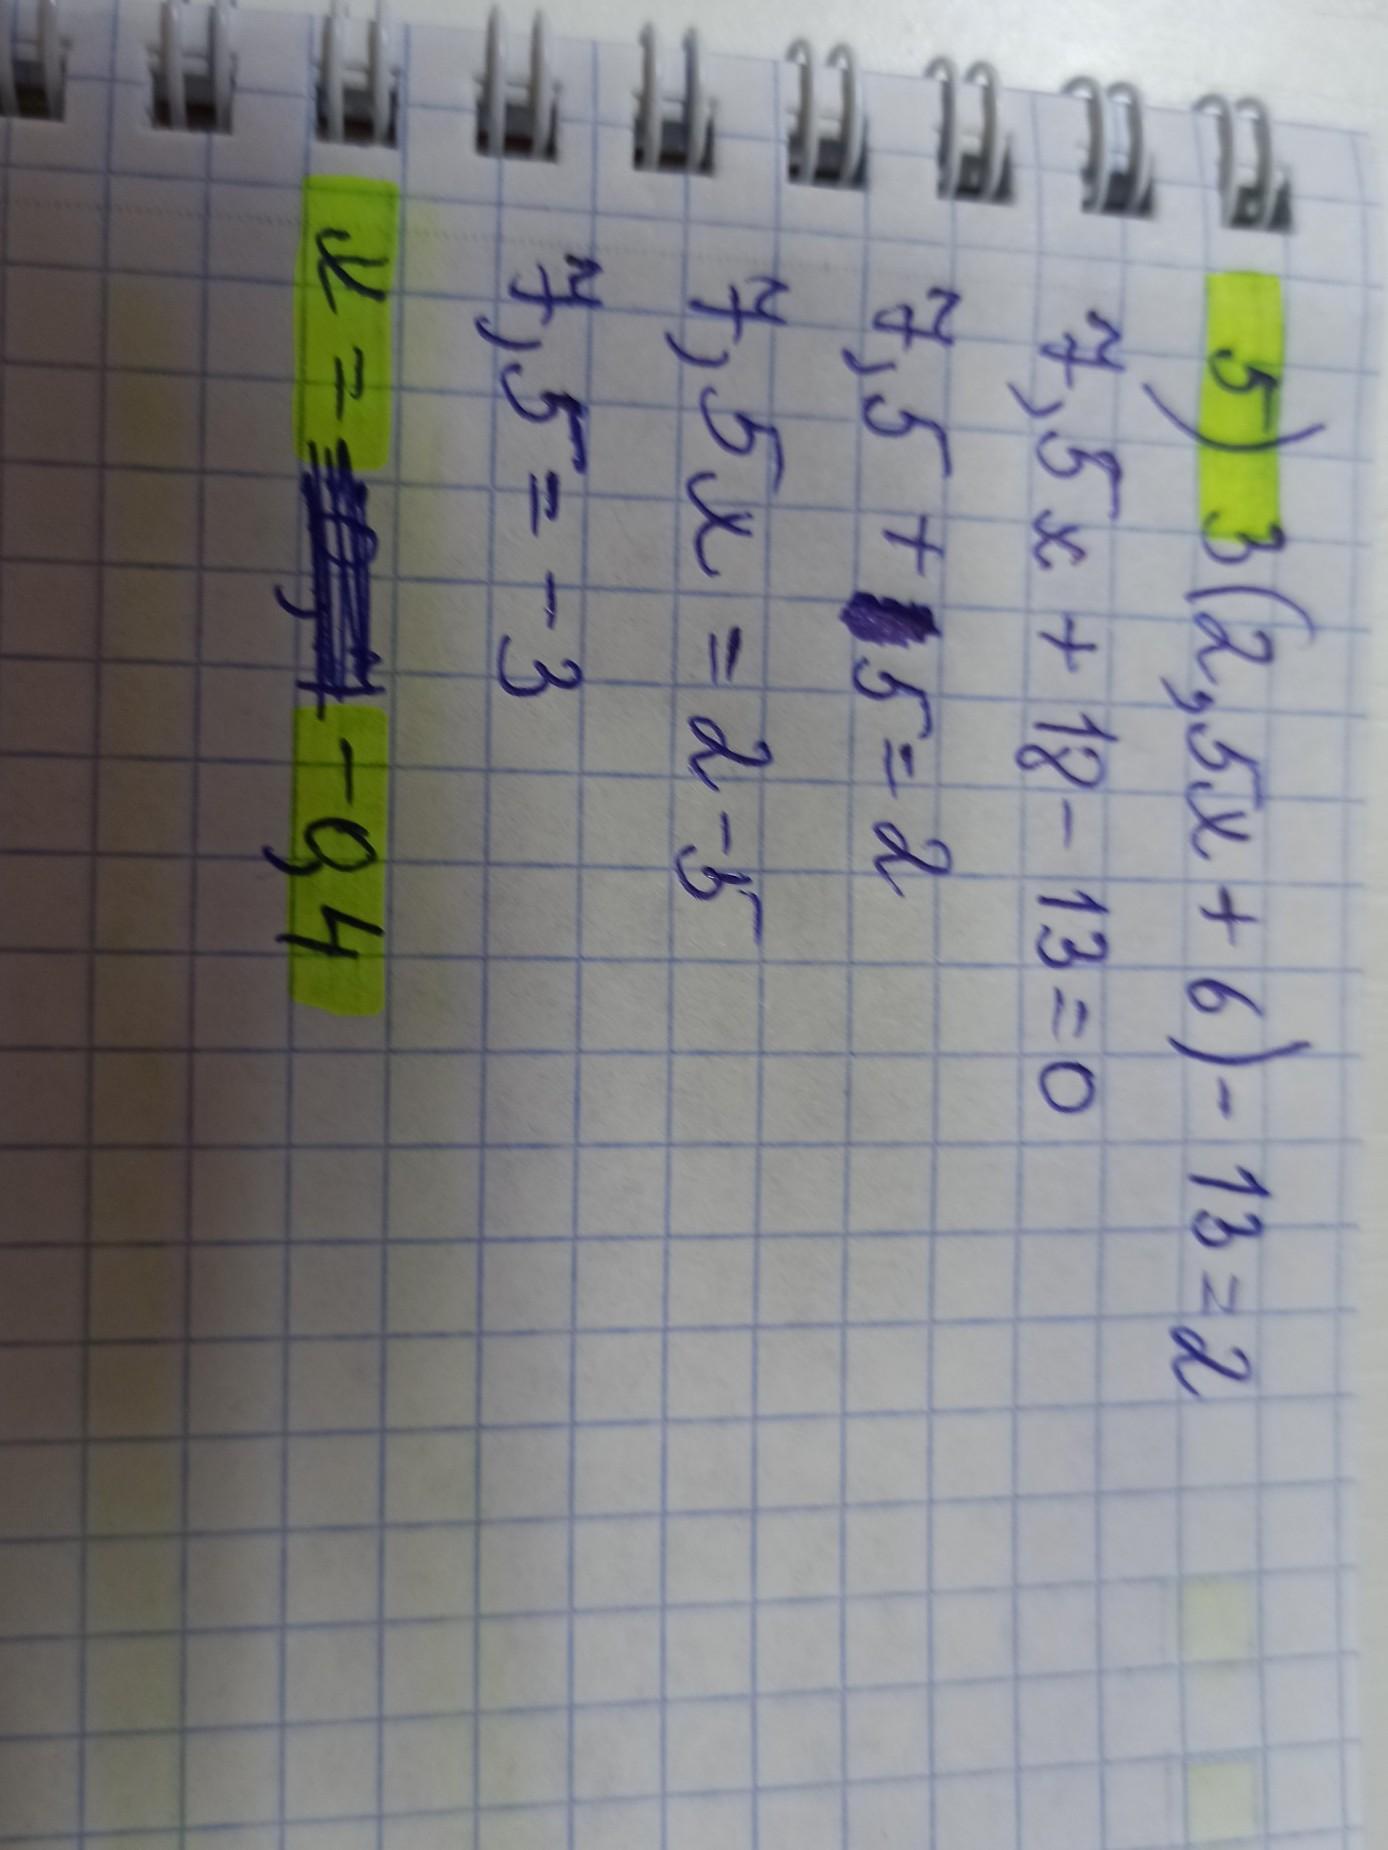 5) 3(2,5x + 6) - 13 = 2
7,5x + 18 - 13 = 0
7,5 + 5 = 2
7,5x = 2 - 5
7,5 = - 3
x = - 0,4